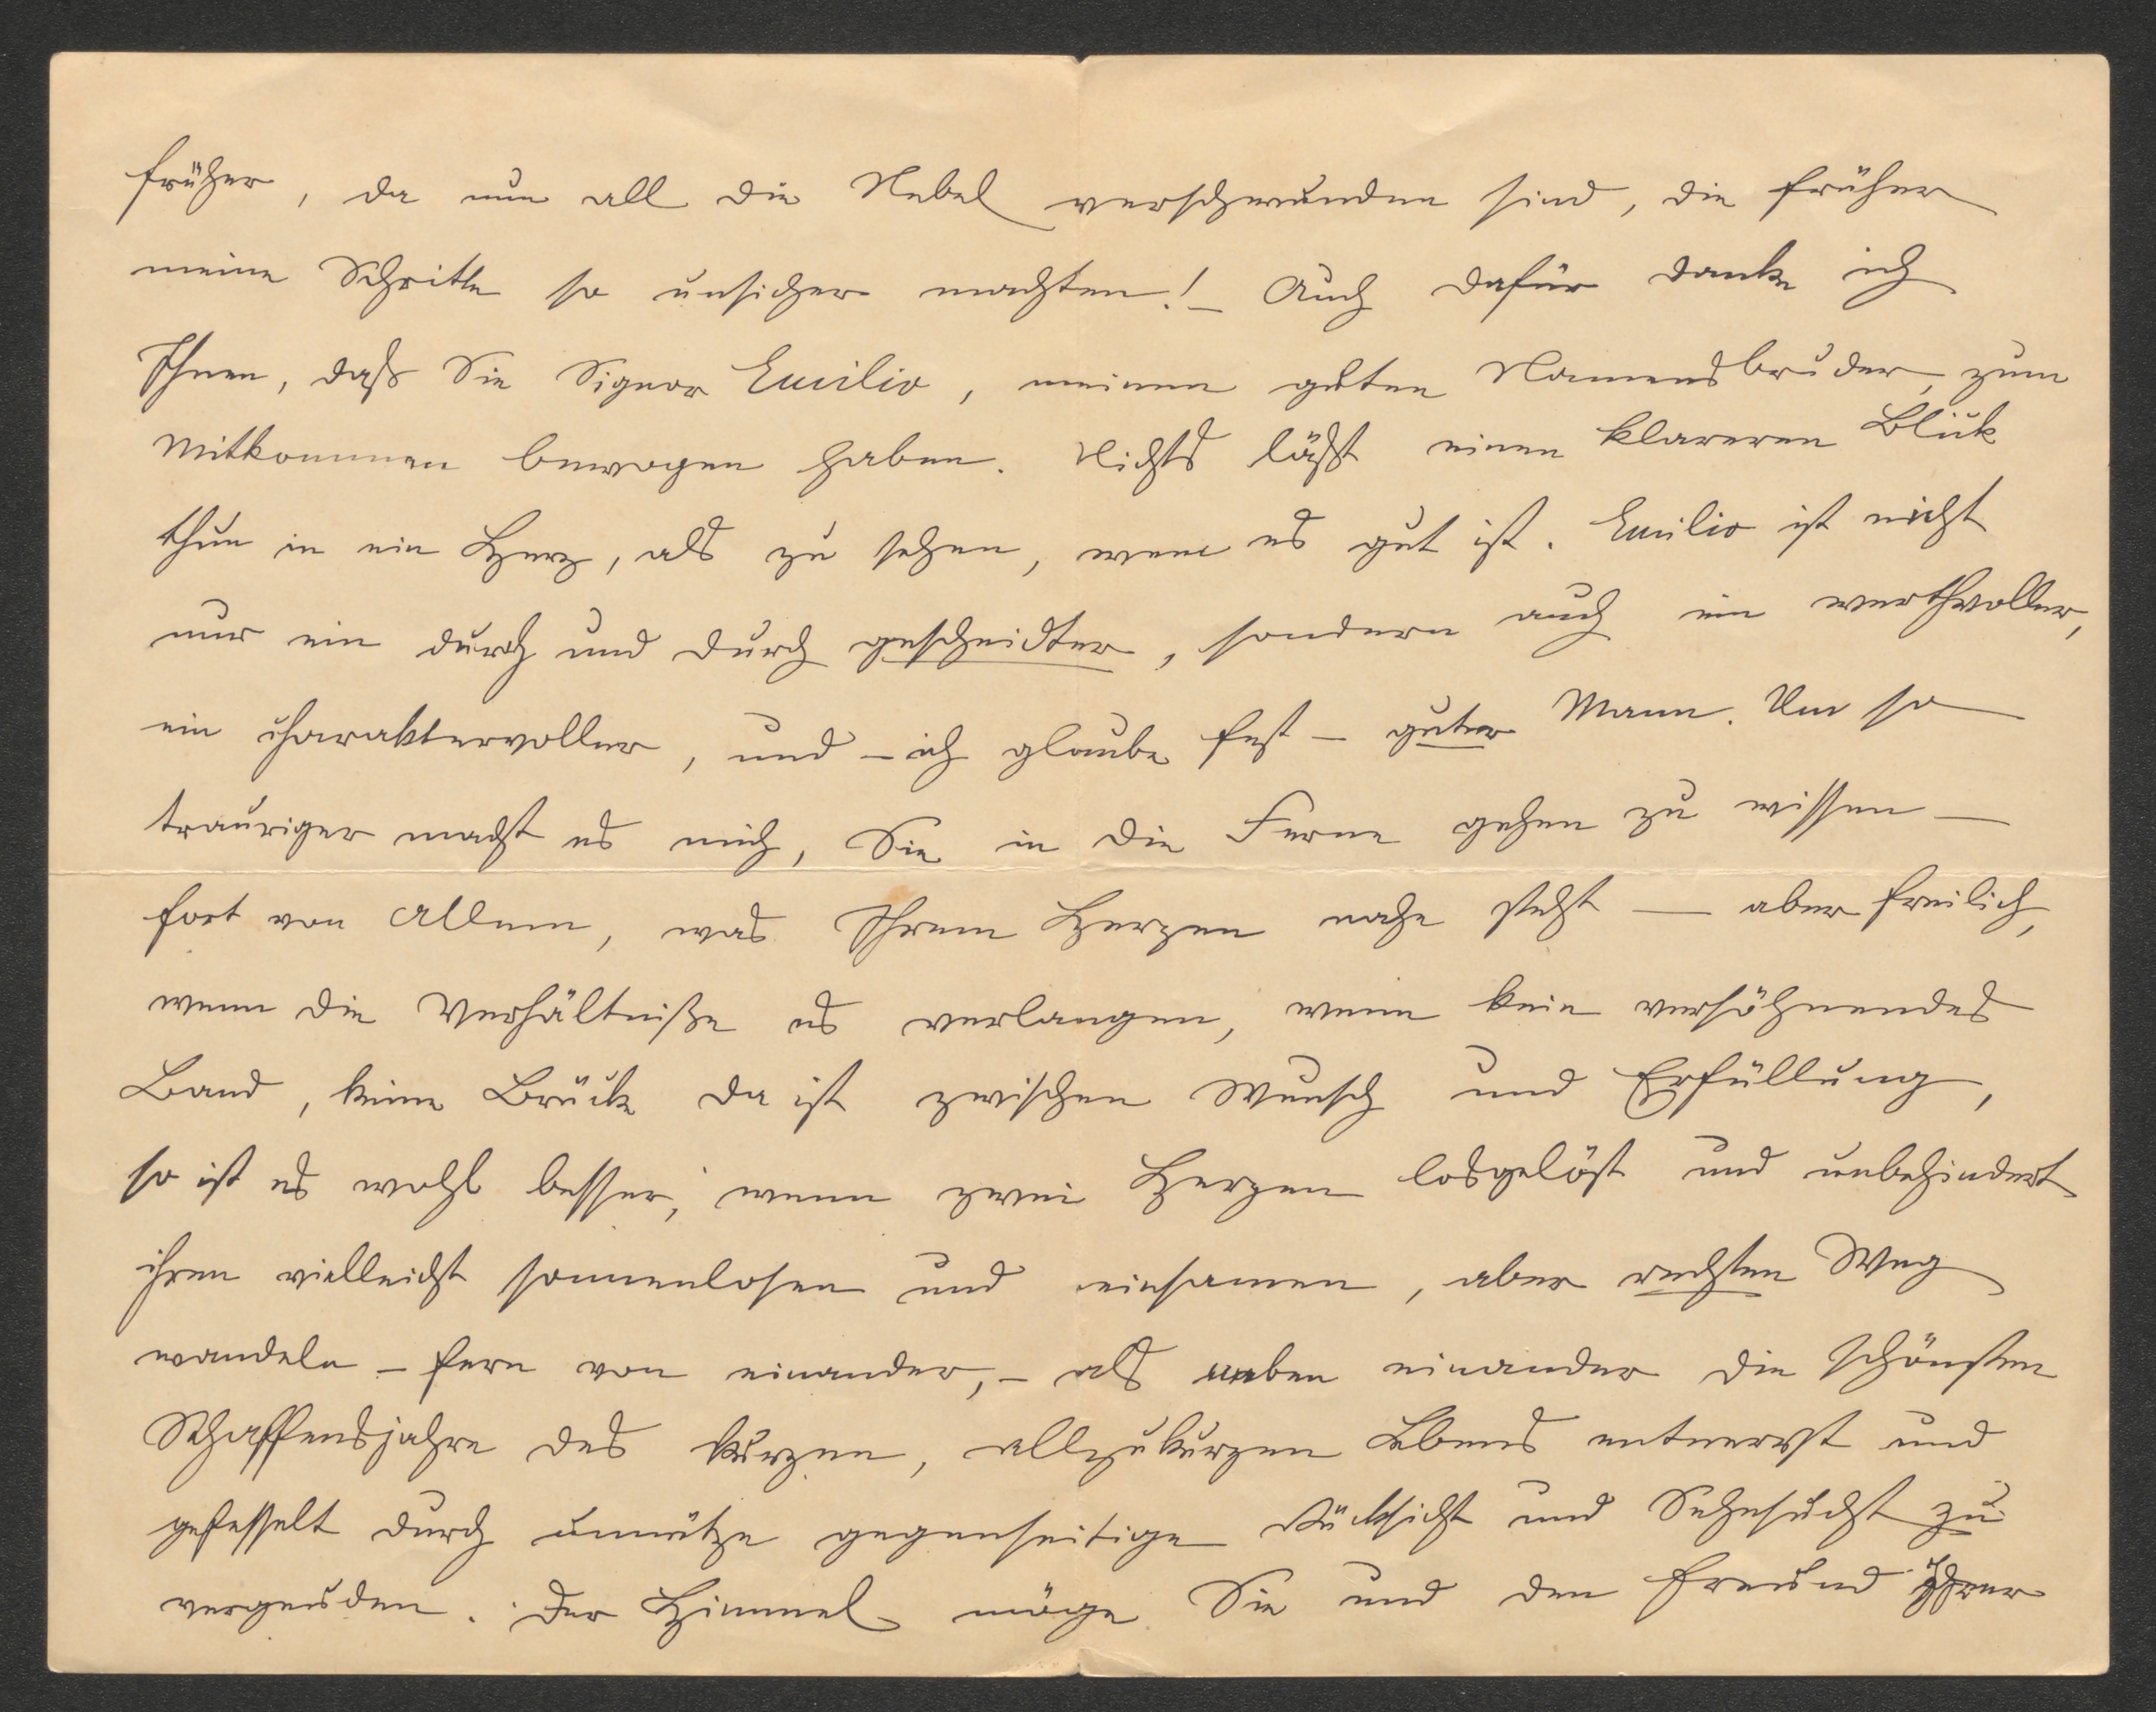 früher, da nun all die Nebel verschwunden sind, die früher
meine Schritte so unsicher machten! – Auch dafür danke ich
Ihnen, daß Sie Signor Emilio, meinen guten Namensbruder, zum
Mitkommen bewogen haben. Nichts läßt einen klareren Blick
thun in ein Herz, als zu sehen, wem es gut ist. Emilio ist nicht
nur ein durch und durch gescheidter, sondern auch ein werthvoller,
ein charaktervoller, und – ich glaube fest – guter Mann. Um so
trauriger macht es mich, Sie in die Ferne gehen zu wissen —
fort von Allem, was Ihrem Herzen nahe steht — aber freilich,
wenn die Verhältniße es verlangen, wenn kein versöhnendes
Band, keine Brücke da ist zwischen Wunsch und Erfüllung,
so ist es wohl besser, wenn zwei Herzen losgelöst und unbehindert
ihren vielleicht sonnenlosen und einsamen, aber rechten Weg
wandeln – fern von einander, – als neben einander die schönsten
Schaffensjahre des kurzen, allzukurzen Lebens entnervt und
gefesselt durch unnütze gegenseitige Rücksicht und Sehnsucht zu
vergeuden. Der Himmel möge Sie und den Freund Ihrer